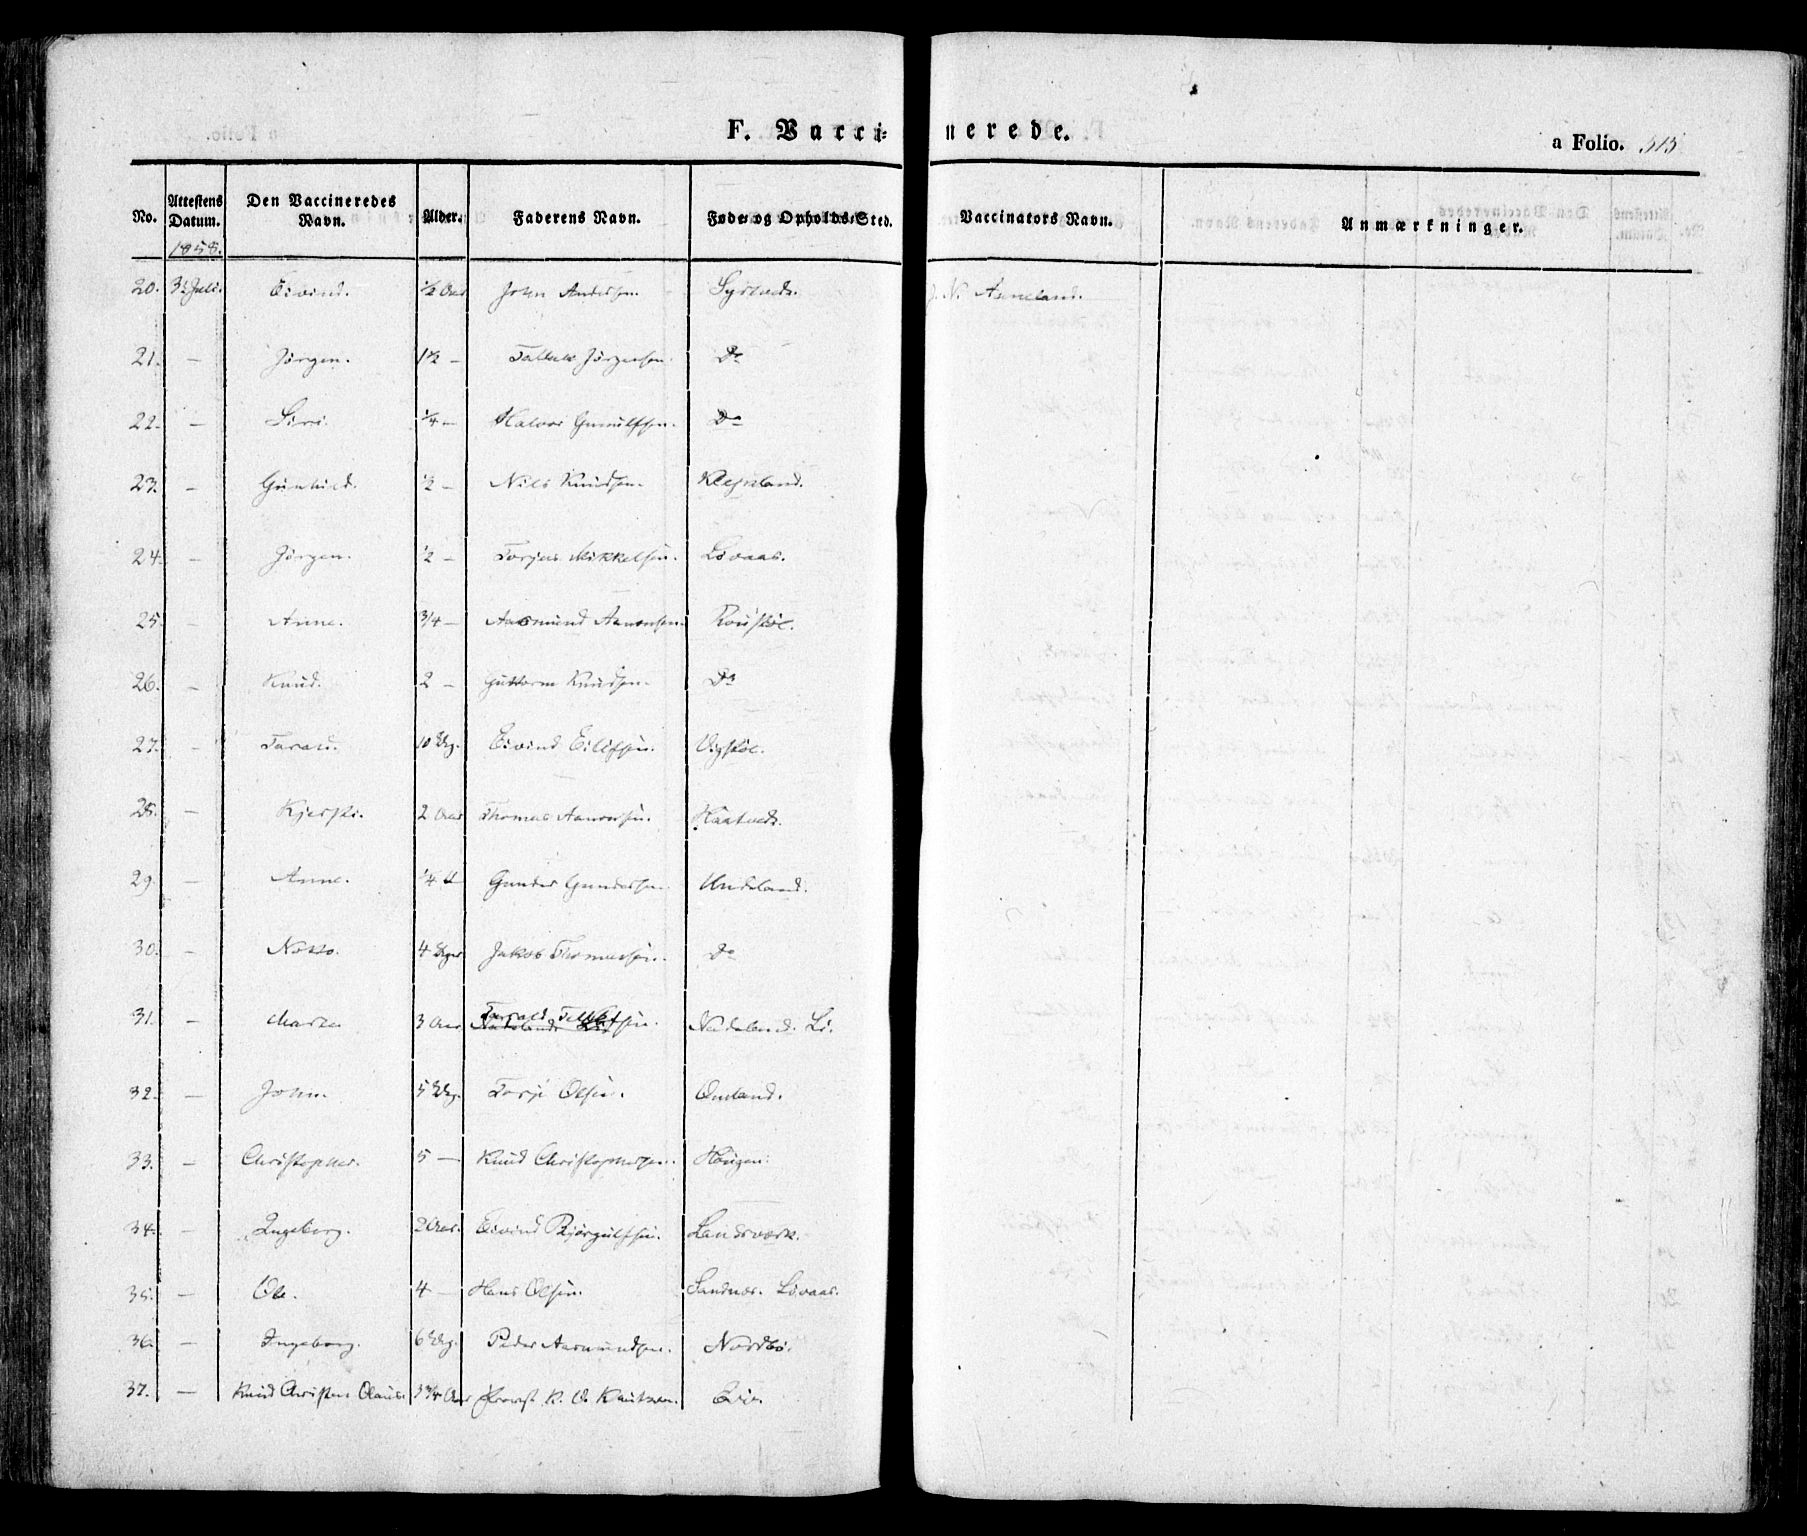 F. Vaccinerede.
a Folio. 515
No. Attestens Datum. Den Vaccineredes Navn. Alder. Faderens Navn. Føde- og Opholds-Sted. Vaccinators Navn. Anmærkninger.
1858.
20. 3 Juli. Eivind. ½ Aar John Andersen. Syrtvedt. J. N. Aaneland.
21. — Jörgen. 1½ — Tallak Jörgensen. Do
22. — Siri. ¼ — Halvor Gunulfsen. Do
23. — Gunhild. ½ — Nils Knudsen.
24. — Jörgen. ½ — Torjus Mikkelsen. Lövaas.
25. — Anne. 3/4 — Aasmund Aanonsen.
26. — Knud. 2 — Guttorm Knudsen. Do
27. — Taran. 10 Eivind Eilifsen. Vigstöl.
28. — Kjersti. 2 Aar Thomas Aanonsen. Haatvedt.
29. — Anne. ¼ Gunder Gundersen.
30. — 4 Jakob Thomassen. Do
31. — Marte 3 Aar Nadeland. Li.
32. — John. 5 Torje Olsen. Omland.
33. — Christopher. 5 — Knud Christophersen. Haugen.
34. — Ingeborg. 2 Aar. Eivind Bjørgulfsen. Landsværk.
35. — Ole. 4 — Hans Olsen. Sandnes. Lövaas.
36. — Ingeborg. 6 Peder Aasmundsen. Nordbö.
37. — Knud Christen Olaus. 3 3/4 Aar Provst K. O. Knutzen. Evje.